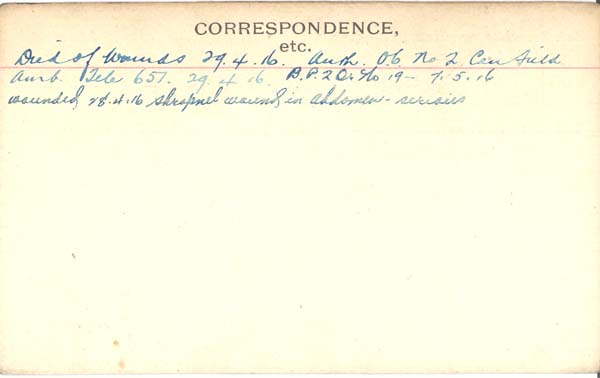 CORRESPONDENCE,
etc.
Died of Wounds 29.4.16. Auth. O.C. No 2 Can Field
Amb. Tele 651. 29.4.16. B.P.2 O. No 19 - 7.5.16
wounded 28.4.16 shrapnel wound in abdomen - serious